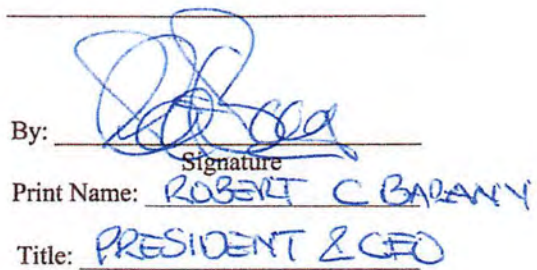 By:
Signature
Print Name: ROBERT C BARANY
Title: PRESIDENT & CEO